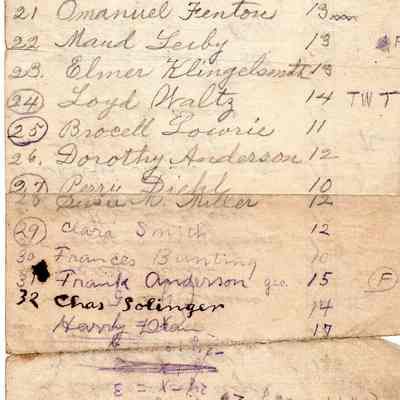 21 Omanuel Fenton 13
22 Maud Leiby 13
23. Elmer Klingelsmith 13
24 Loyd Waltz 14 T W T
25 Brocell Lowrie 11
26. Dorothy Anderson 12
27 Perry Diehl 10
28 Susie M. Miller 12
29 Clara Smith 12
30 Frances Bunting 10
31 Frank Anderson 15 F
32 Chas Solinger 14
Harry 17